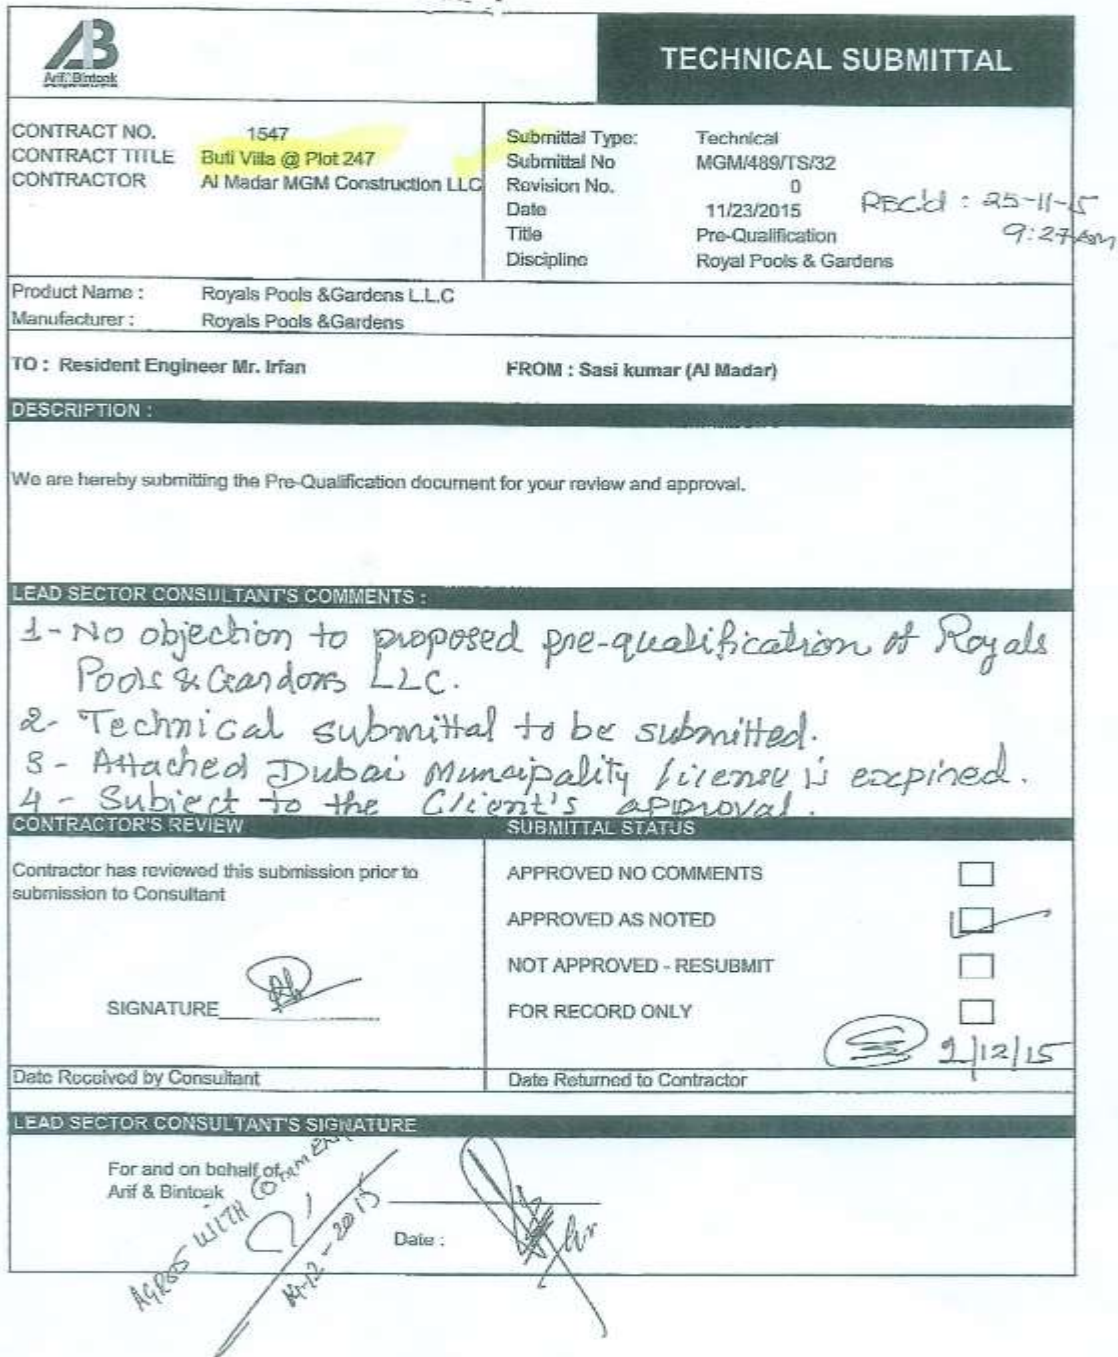 AB
Arif & Bintoak
TECHNICAL SUBMITTAL
CONTRACT NO. 1547
CONTRACT TITLE Buti Villa @ Plot 247
CONTRACTOR Al Madar MGM Construction LLC
Submittal Type: Technical
Submittal No MGM/489/TS/32
Revision No. 0
Date 11/23/2015
Title Pre-Qualification
Discipline Royal Pools & Gardens
REC'd : 25-11-15
9:27 AM
Product Name : Royals Pools &Gardens L.L.C
Manufacturer : Royals Pools &Gardens
TO : Resident Engineer Mr. Irfan
FROM : Sasi kumar (Al Madar)
DESCRIPTION :
We are hereby submitting the Pre-Qualification document for your review and approval.
LEAD SECTOR CONSULTANT'S COMMENTS :
1- No objection to proposed pre-qualification of Royals
Pools & Gardons LLC.
2- Technical submittal to be submitted.
3- Attached Dubai Muncipality license is expired.
4- Subject to the Client's approval.
CONTRACTOR'S REVIEW
Contractor has reviewed this submission prior to
submission to Consultant
SIGNATURE
SUBMITTAL STATUS
APPROVED NO COMMENTS
APPROVED AS NOTED
NOT APPROVED - RESUBMIT
FOR RECORD ONLY
2/12/15
Date Received by Consultant
Date Returned to Contractor
LEAD SECTOR CONSULTANT'S SIGNATURE
For and on behalf of
Arif & Bintoak
Date :
AGREES WITH COMMENT
14-12-2015